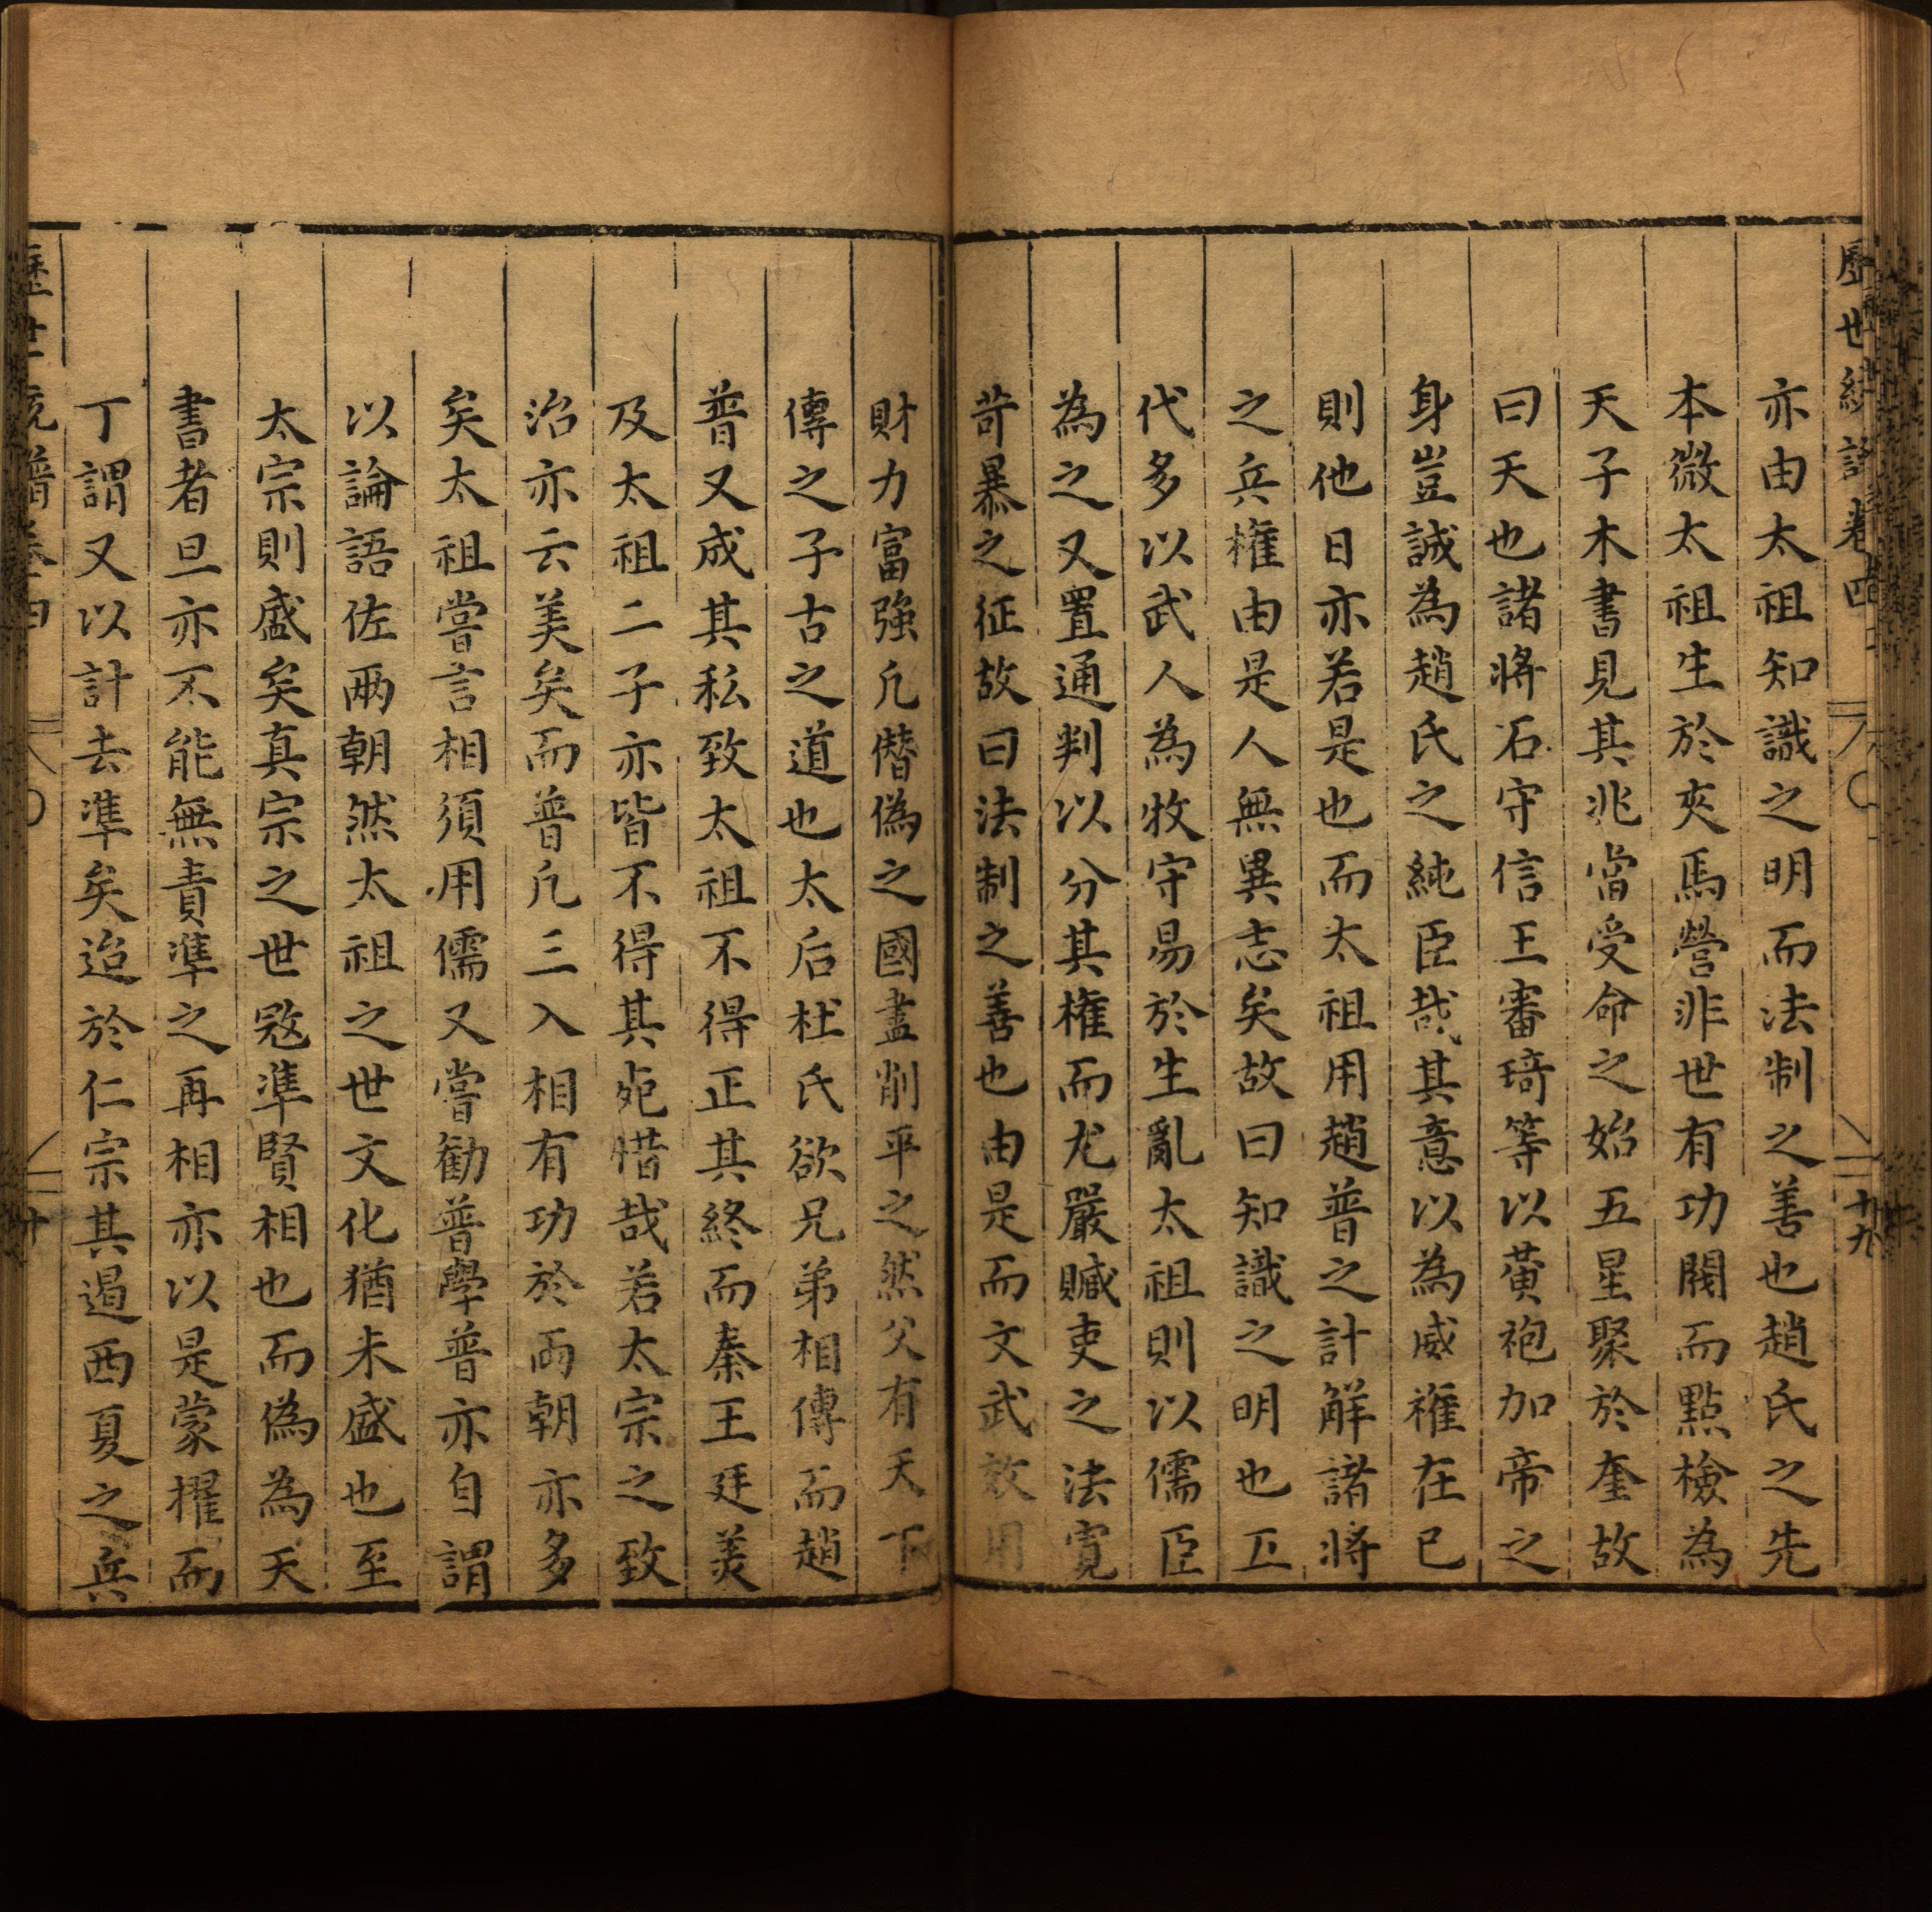 歷世統譜卷四
十九
亦由太祖知識之明而法制之善也趙氏之先
本微太祖生於夾馬營非世有功閥而點檢為
天子木書見其兆當受命之始五星聚於奎故
曰天也諸將石守信王審琦等以黃袍加帝之
身豈誠為趙氏之純臣哉其意以為威權在已
則他日亦若是也而太祖用趙普之計解諸將
之兵權由是人無異志矣故曰知識之明也五
代多以武人為牧守易於生亂太祖則以儒臣
為之又置通判以分其權而尤嚴贓吏之法寬
苛暴之征故曰法制之善也由是而文武效用
財力富強凡僭偽之國盡削平之然父有天下
傳之子古之道也太后杜氏欲兄弟相傳而趙
普又成其私致太祖不得正其終而秦王廷美
及太祖二子亦皆不得其死惜哉若太宗之致
治亦云美矣而普凡三入相有功於両朝亦多
矣太祖嘗言相須用儒又嘗勸普學普亦自謂
以論語佐兩朝然太祖之世文化猶未盛也至
太宗則盛矣真宗之世寇準賢相也而偽為天
書者旦亦不能無責準之再相亦以是蒙擢而
丁謂又以計去準矣迨於仁宗其遏西夏之兵
歷世統譜卷四
廿